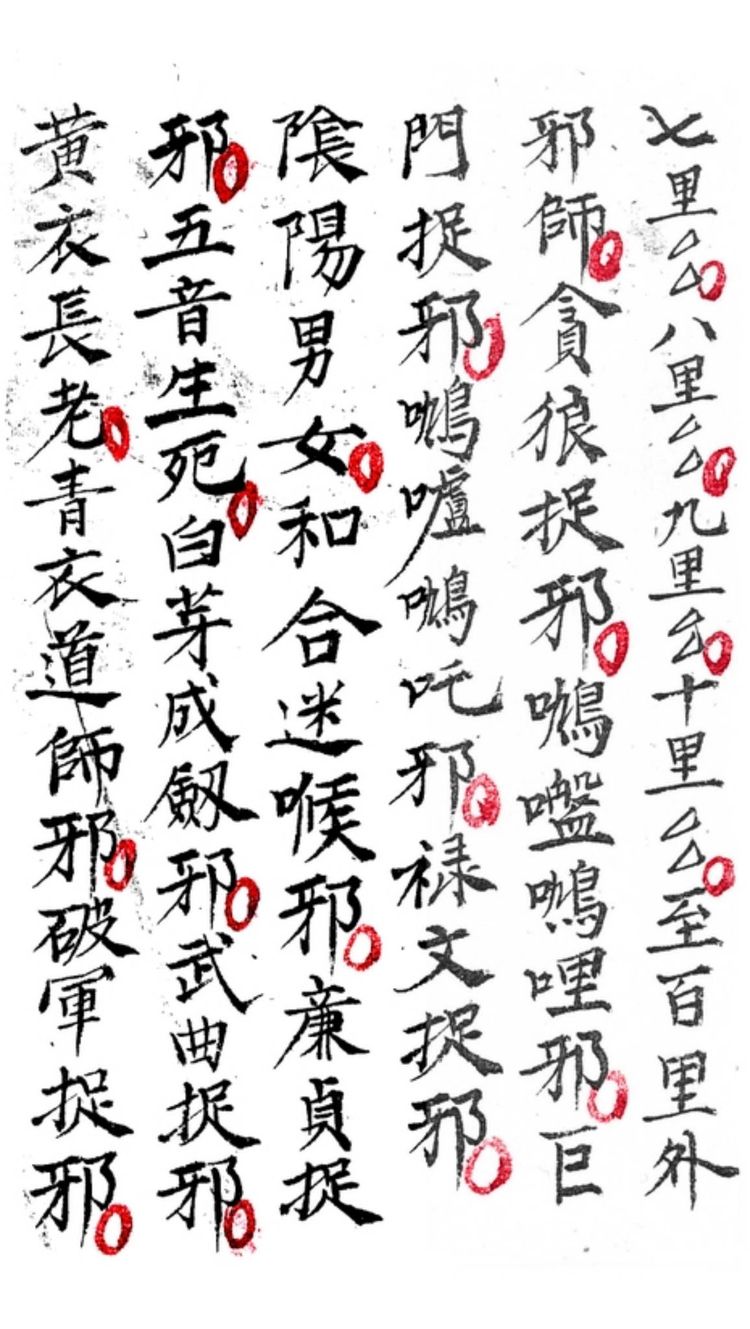 七里厶厶。八里厶厶。九里厶厶。十里厶厶。至百里外
邪師。貪狼捉邪。哩邪。巨
門捉邪。嚧吒邪。禄文捉邪。
陰陽男女。和合迷喉邪。廉貞捉
邪。五音生死。白芽成劔邪。武曲捉邪。
黄衣長老。青衣道師邪。破軍捉邪。